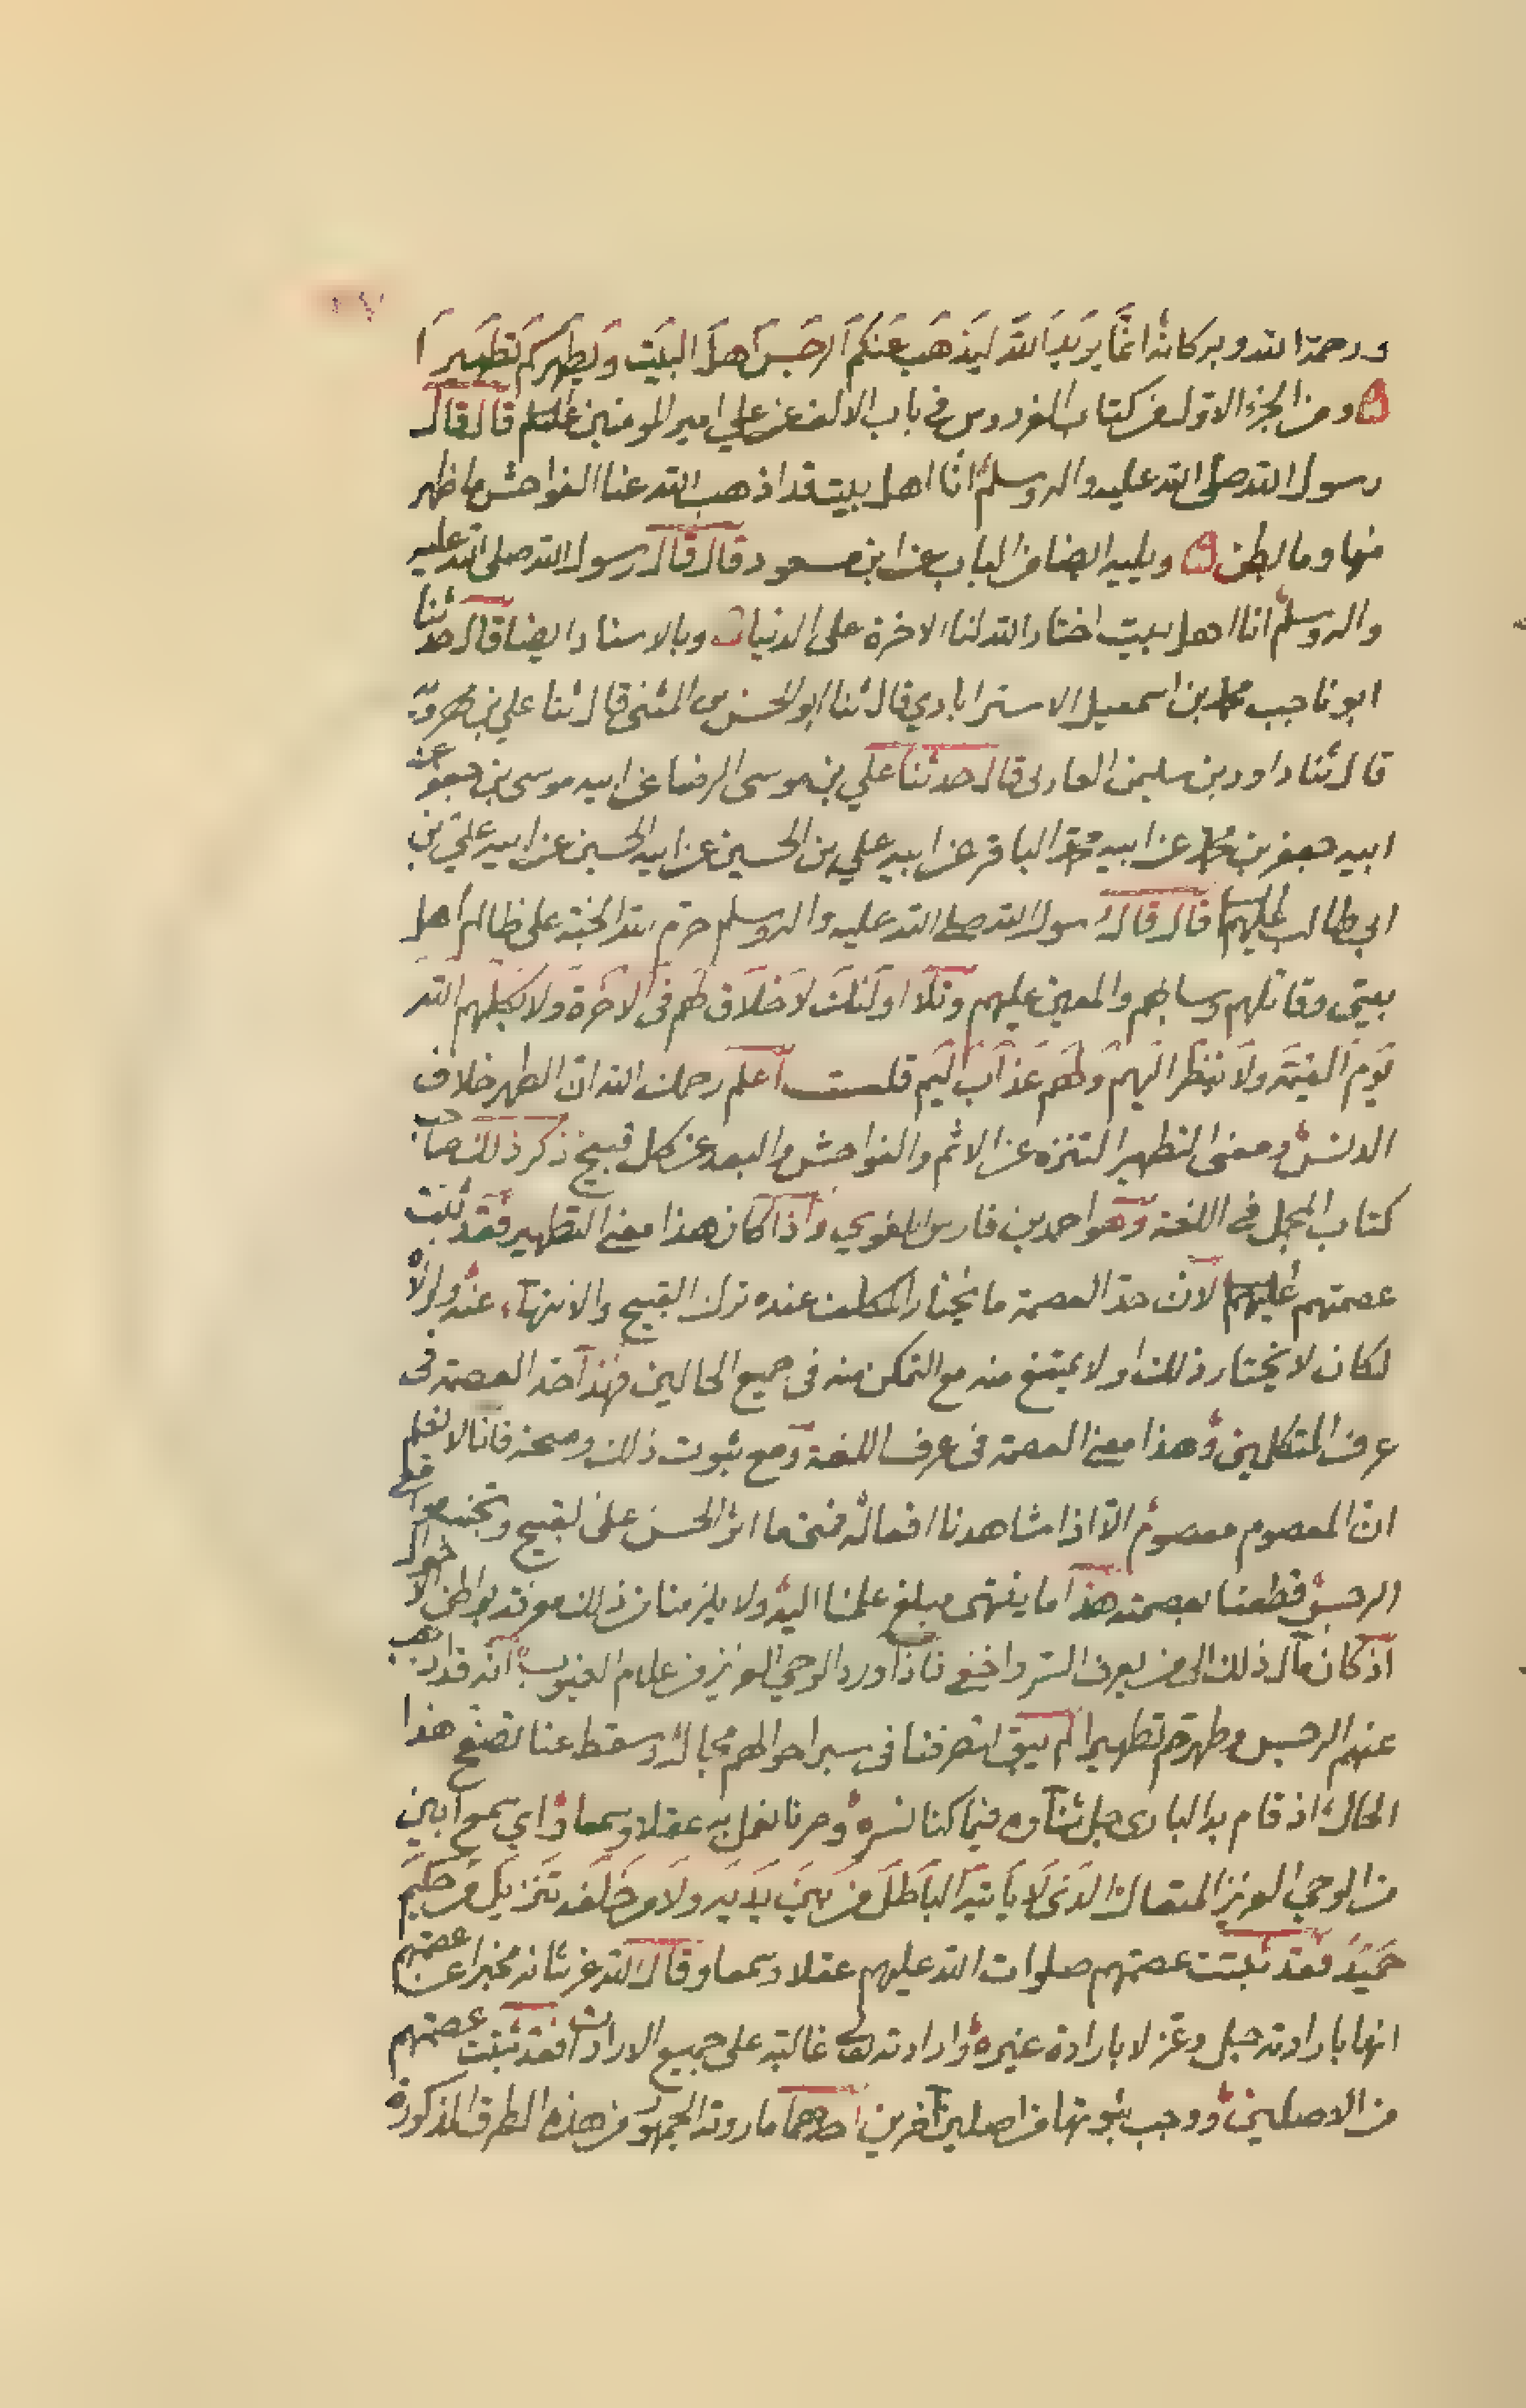 ١٧
ورحمة الله وبركاته انما يريد الله ليذهب عنكم الرجس اهل البيت ويطهركم تطهيرا
ه ومن الجزء الاول من كتاب الفردوس في باب الالف عن علي امير المومنين علیلم قال قال
رسول الله صلى الله عليه واله وسلم انا اهل بيت قد اذهب الله عنا الفواحش ما ظهر
منها وما بطن ه ويليه ايضا من الباب عن ابن مسعود قال قال رسول الله صلى الله عليه
واله وسلم انا اهل بيت اختار الله لنا الاخرة على الدنيا ه وبالاسناد ايضا قال حدثنا
ابو ناجب محمد بن اسمعيل الاسترابادي قال ثنا ابو الحسن بن المثنى قال ثنا علي بن مهرويه
قال ثنا داود بن سليمن الغازى قال حدثنا علي بن موسى الرضا عن ابيه موسى بن جعفر عن
ابيه جعفر بن محمد عن ابيه محمد الباقر عن ابيه علي بن الحسين عن ابيه الحسين عن ابيه علي بن
ابي طالب عليهم قال قال رسول الله صلى الله عليه واله وسلم حرم الله الجنة على ظالم اهل
بيتي وقاتلهم وسابهم والمعين عليهم وتلا اولئك لا خلاق لهم في الاخرة ولا يكلمهم الله
يوم القيمة ولا ينظر اليهم ولهم عذاب اليم قلت اعلم رحمك الله ان الطهر خلاف
الدنس ومعنى التطهير التنزه عن الاثم والفواحش والبعد عن كل قبيح ذكر ذلك صاحب
كتاب المجمل في اللغة وهو احمد بن فارس اللغوي واذا كان هذا معنى التطهير فقد ثبت
عصمتهم عليهم لان حد العصمة ما يختار المكلف عنده ترك القبيح والانتهاء عنه ولولاه
لكان لا يختار ذلك او لا يمتنع منه مع التمكن منه في جميع الحالين فهذا حد العصمة في
عرف المتكلمين وهذا معنى العصمة في عرف اللغة ومع ثبوت ذلك وصحته فانا لا نعلم
ان المعصوم معصوم الا اذا شاهدنا افعاله فمتى ما اثر الحسن على القبيح وتجنب مواقع
الرجس قطعنا بعصمته هذا ما ينتهى مبلغ علمنا اليه ولا يلزمنا من ذلك معرفة بواطن الاحوال
اذ كان مآل ذلك الى من يعرف السر واخفى فاذا ورد الوحي العزيز من علام الغيوب انه قد اذهب
عنهم الرجس وطهرهم تطهيرا لم يبق لتصرفنا في سبر احوالهم مجال وسقط عنا تصفح هذا
الحال اذ قام به البارى جل ثناوه فيما كنا نسبره وصرنا نعمل به عقلا وسمعا واي سمع ابين
من الوحي العزيز المتعال الذى لا ياتيه الباطل من بين يديه ولا من خلفه تنزيل من حكيم
حميد فقد ثبتت عصمتهم صلوات الله عليهم عقلا وسمعا وقال الله عز شانه مخبرا عن عصمتهم
انها بارادته جل وعز لا بارادة غيره وارادته تعالى غالبة على جميع الارادات فقد ثبتت عصمتهم
من الاصلين ووجب ثبوتها من اصلين آخرين احدهما ما روته الجمهور من هذه الطرق المذكورة